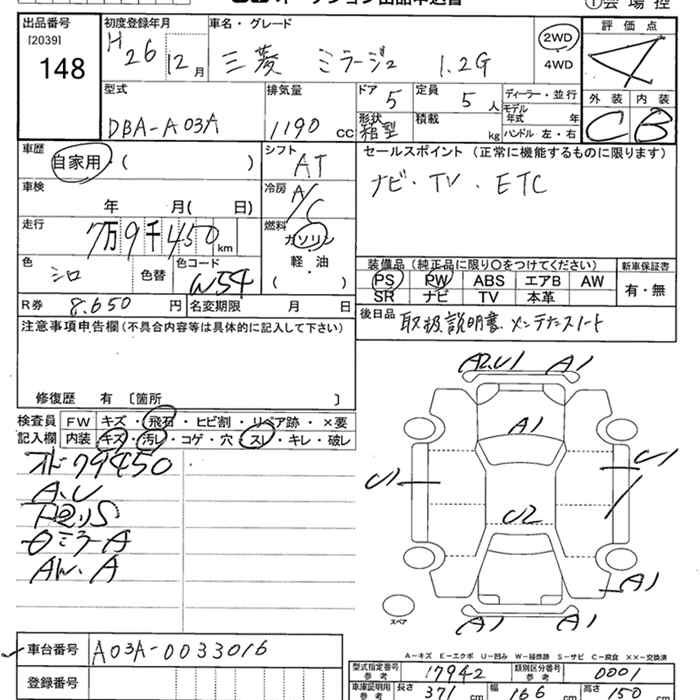 オークション出品申込書
①会場控
出品番号 初度登録年月 車名・グレード 評価点
[2039] H 26 12 月 三菱 ミラージュ 1.2G 2WD 4
148 4WD
型式 排気量 ドア 定員 ディーラー・並行 外装 内装
DBA-A03A 1190 cc 5 5人 モデル年式 年 C B
形状 箱型 積載 kg ハンドル 左・右
車歴 自家用・( ) シフト AT セールスポイント (正常に機能するものに限ります)
車検 年 月( 日) 冷房 A/C ナビ・TV・ETC
走行 7万9千450km 燃料 ガソリン
軽・油
( )
色 シロ 色替 色コード W54
装備品 (純正品に限り○をつけてください) 新車保証書
PS PW ABS エアB AW 有・無
SR ナビ TV 本革
R券 8,650 円 名変期限 月 日 後日品 取扱説明書 メンテナンスノート
注意事項申告欄(不具合内容等は具体的に記入して下さい)
修復歴 有 〔箇所 〕
検査員 FW キズ・飛石・ヒビ割・リペア跡・×要
記入欄 内装 キズ・汚レ・コゲ・穴・スレ・キレ・破レ
79450
A.U
A
A
A2.U1 A1
A1
U1 U1
U2
A1
A1 A1
スペア
A-キズ E-エクボ U-凹み W-補修跡 S-サビ C-腐食 XX-交換済
車台番号 A03A-0033016
登録番号
型式指定番号 参考 17942 類別区分番号 参考 0001
車庫証明用 参考 長さ 371 cm 幅 166 cm 高さ 150 cm